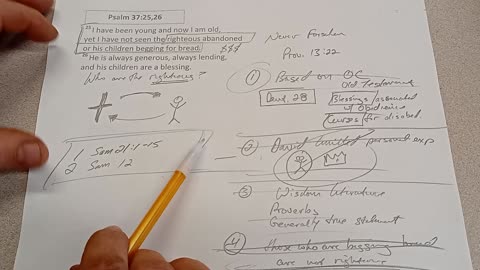 Psalm 37:25,26
25 I have been young and now I am old,
yet I have not seen the righteous abandoned
or his children begging for bread. $$$
26 He is always generous, always lending,
and his children are a blessing.
Who are the righteous?
1 Sam 21:1-15
2 Sam 12
Never Forsaken
Prov. 13:22
1 Based on OC
Old Testament
Deut. 28
Blessings associated
w/ obedience
Curses for disobed.
2 David limited personal exp
3 Wisdom literature
Proverbs
Generally true statement
4 those who are begging bread
are not righteous